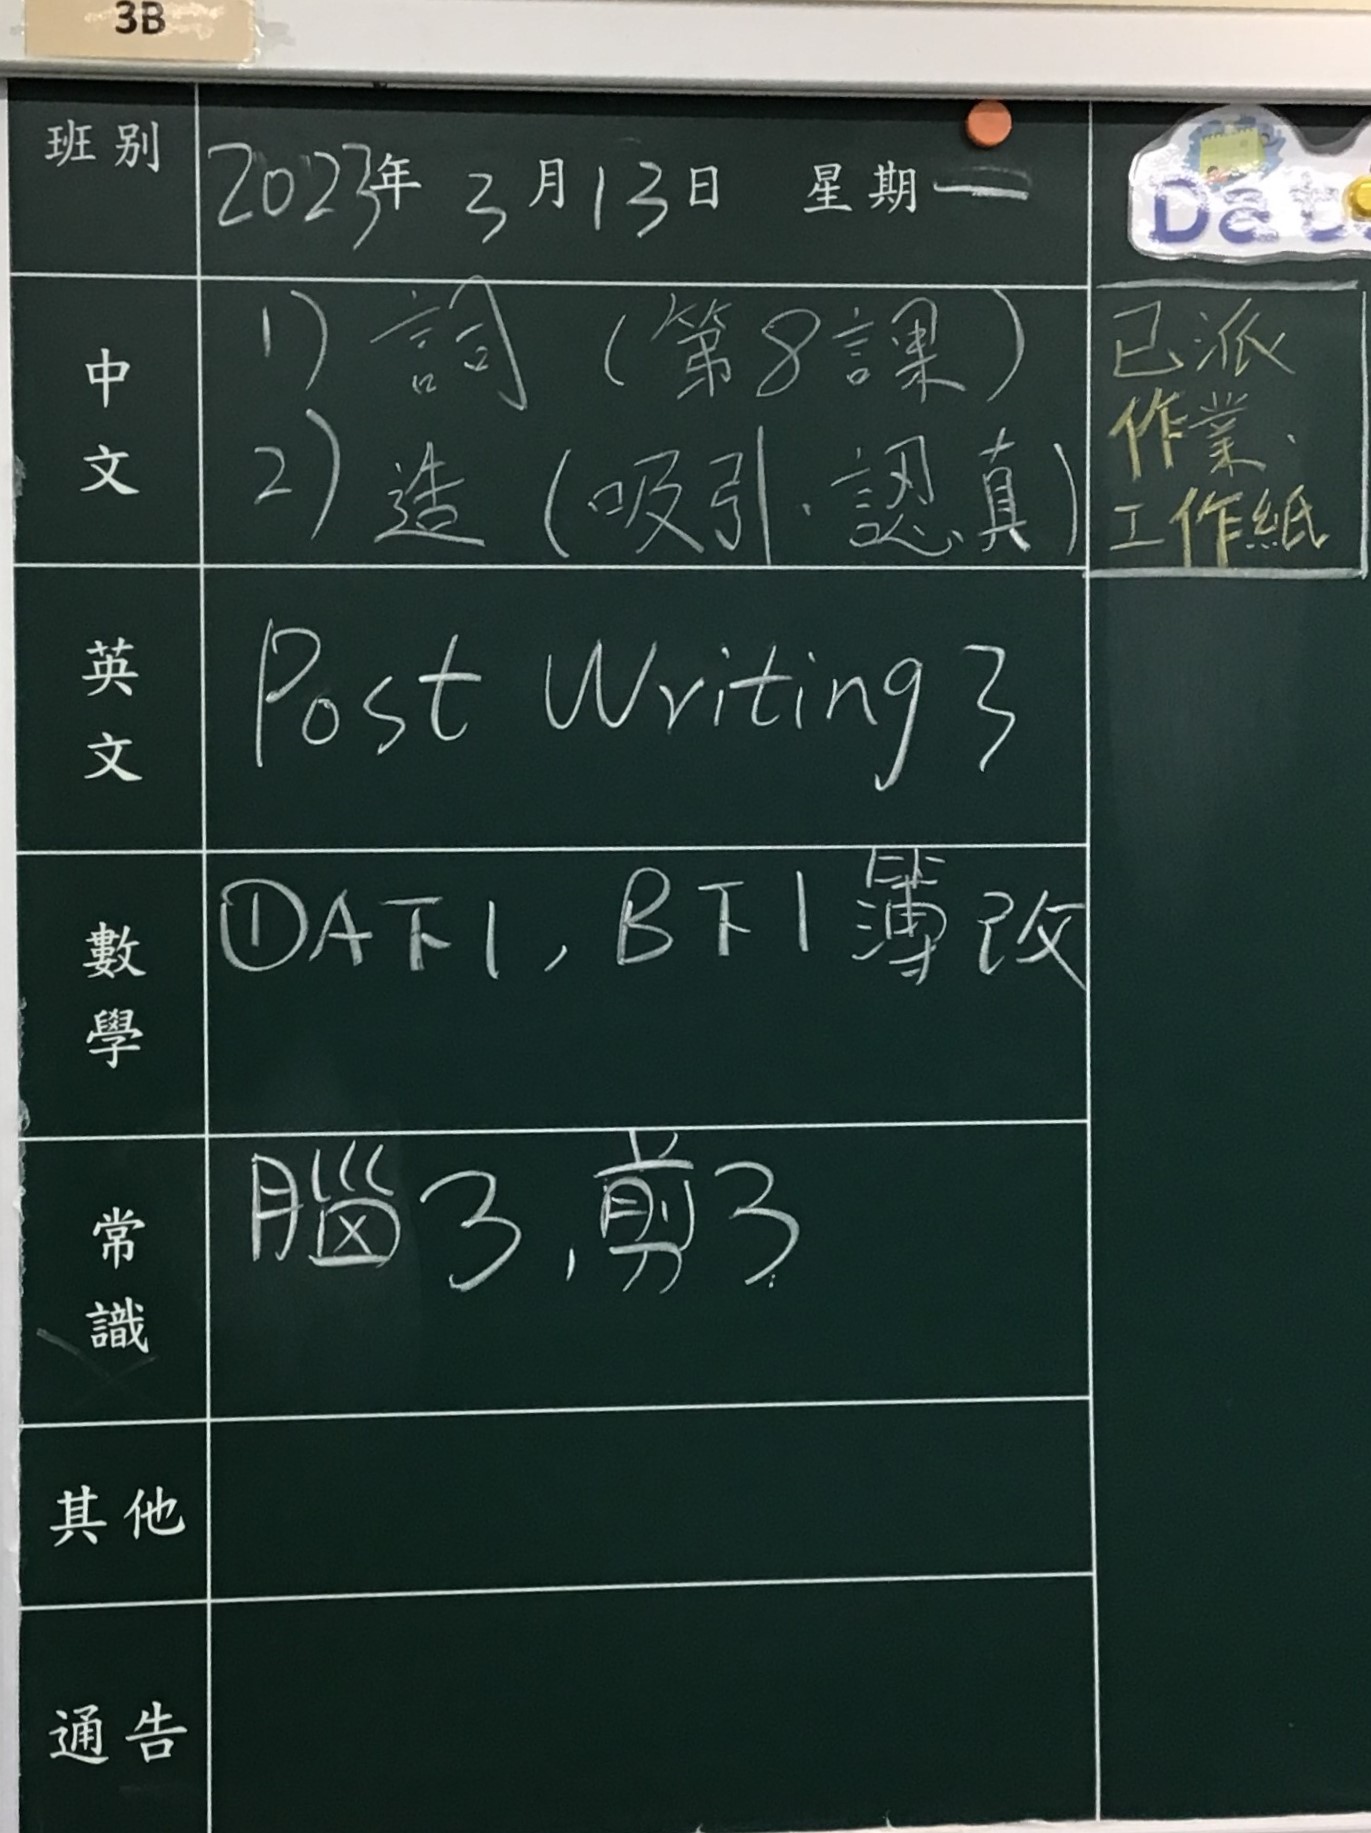 3B
班別 2023年 3月13日 星期一
中文
1) 詞 (第8課)
2) 造 (吸引.認真)
已派
作業、
工作紙
英文
Post Writing 3
數學
①A下1, B下1簿改
常識
腦3,剪3
其他
通告